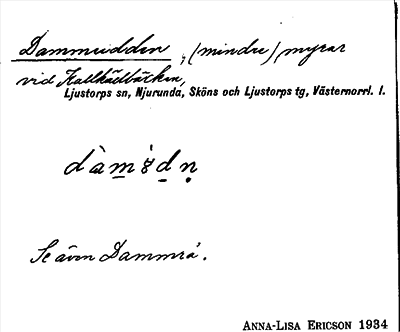 Dammudden, (mindre) myrar
vid Kallkädbäcken,
Ljustorps sn, Njurunda, Sköns och Ljustorps tg, Västernorrl. l.
Se även Dammrå.
ANNA-LISA ERICSON 1934